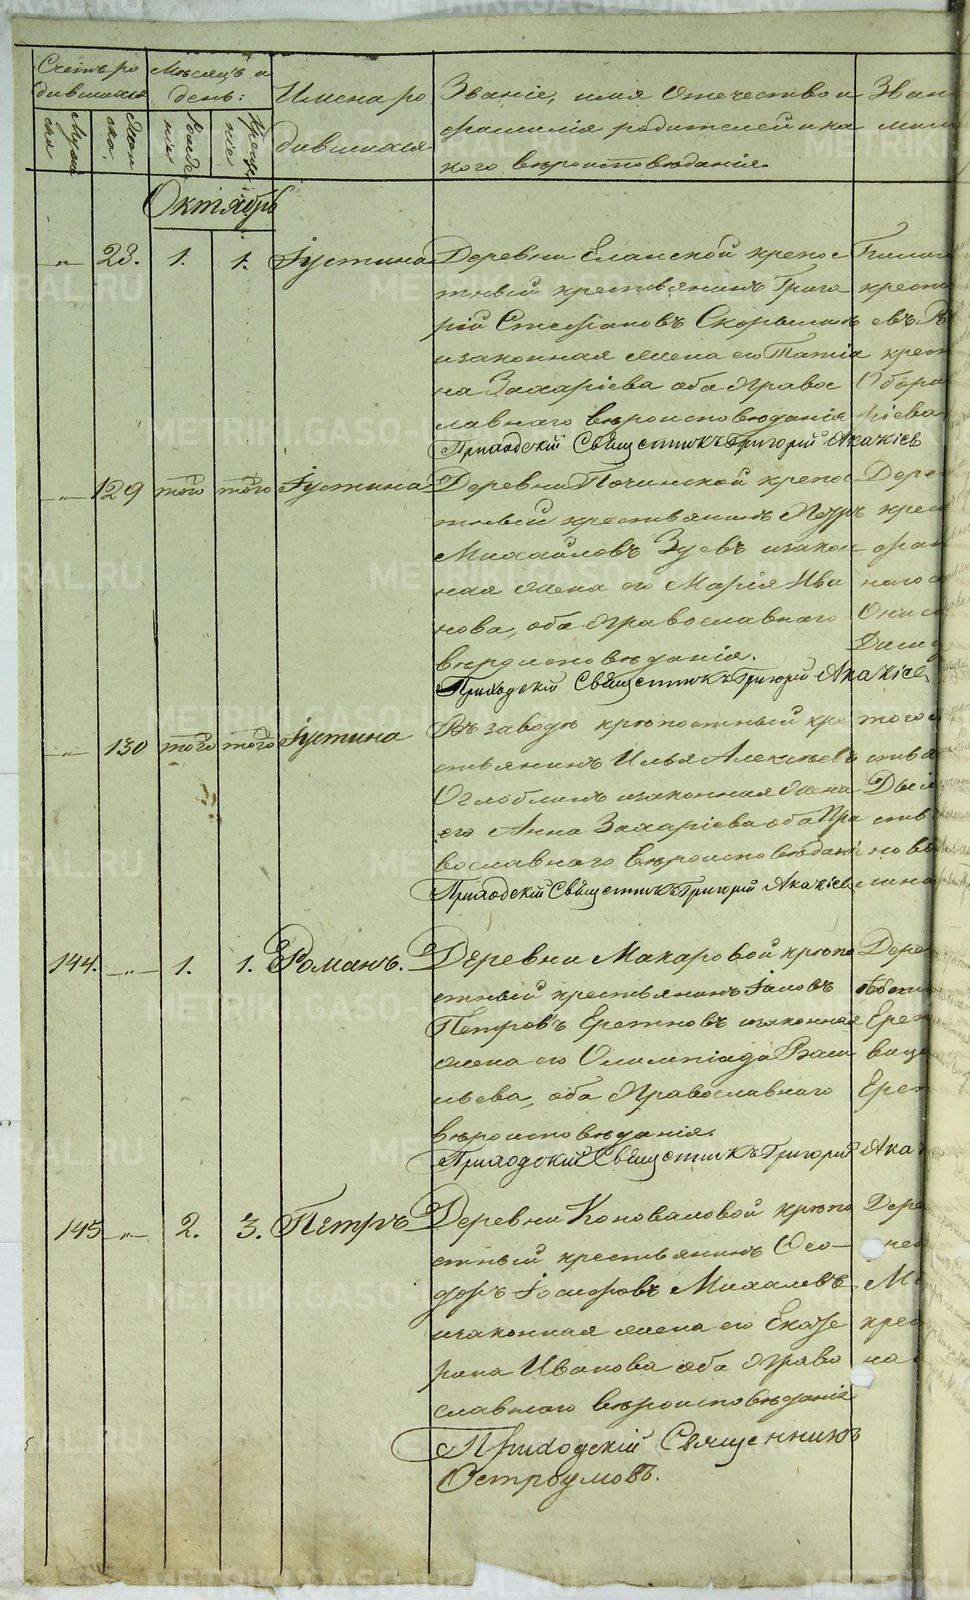 Счетъ ро Мѣсяцъ и
дившихся день:
Имена ро
дившихся
Званіе, имя отечество и
фамилія родителей и ка
кого вѣроисповѣданія.
Зван
Муже
ска
Женс
ска.
Рожде
нія
Креще
нія
Октябрь
„ 23. 1. 1. Іустина Деревни Еланской крепос
тный крестьянинъ Григо крест
рій Стефановъ Скорынинъ
и законная жена его Татіа крест
на Захаріева оба Право
славнаго вѣроисповѣданія
Приходскій Священникъ Григорій Акакіев
„ 129 того того Іустина Деревни Починской крепос Дере
тный крестьянинъ Петръ крес
Михайловъ Зуевъ и закон
ная жена его Марія Ива
нова, оба Православнаго
вѣроисповѣданія.
Приходскій Священникъ Григорій Акакіев
„ 130 того того Іустина Въ заводѣ крѣпостный кре того
стьянинъ Илья Алексѣевъ
Оглоблинъ и законная жена
его Анна Захаріева оба Пра
вославнаго Вѣроисповѣдані
Приходскій Священникъ Григорій Акакіев
144. „ 1. 1. Романъ. Деревни Макаровой крѣпо Дере
стный крестьянинъ Іаковъ
Петровъ Еретновъ и законная Ерет
жена его Олимпіада Васи
льева, оба Православнаго Ерет
вѣроисповѣданія.
Приходскій Священникъ Григорій Ака
145 „ 2. 3. Петръ Деревни Коноваловой крѣпо Дере
стный крестьянинъ Ѳео-
доръ Іосифовъ Михалевъ
и законная жена его Екате крес
рина Иванова оба Право на
славнаго вѣроисповѣданія
Приходскій Священникъ
Остроумовъ.
METRIKI.GASO-URAL.RU